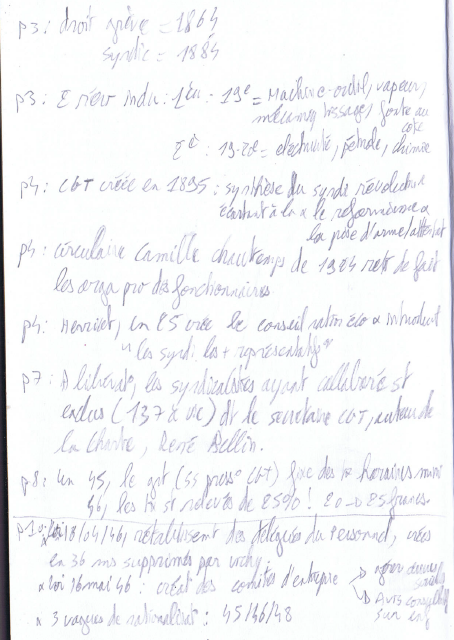 p3: droit grève = 1864
syndic = 1884
p3: 2 révo indu: 1ère: 19e = Machine-outil, vapeur,
tissage, fonte au
coke
2e: 19-20e = électricité, pétrole, chimie
p4: CGT créée en 1895: synthèse du syndi révolut
écartant à la le réformisme
la prise d'arme/attentat
p4: circulaire Camille Chautemps de 1924 de fait
les orga pro des fonctionnaires
p4: Herriot, en 25 crée le conseil nation éco introduit
"les syndi les + représentatifs"
p7: A libérat, les syndicalistes ayant collaboré st
exclus (137 vic) dt le secrétaire CGT, auteur de
la Charte, René Bellin.
p8: en 45, le gvt (ss press° CGT) fixe des horaires mini
46, les st relevés de 25%! 20 → 25 francs.
18/04/46, rétablissent des délégués du Personnel, crées
en 36 ms supprimés par vichy
x loi 16 mai 46: créat des comités d'entreprise → gérer œuvres sociales
→ Avis
sur
x 3 vagues de nationalisat: 45/46/48